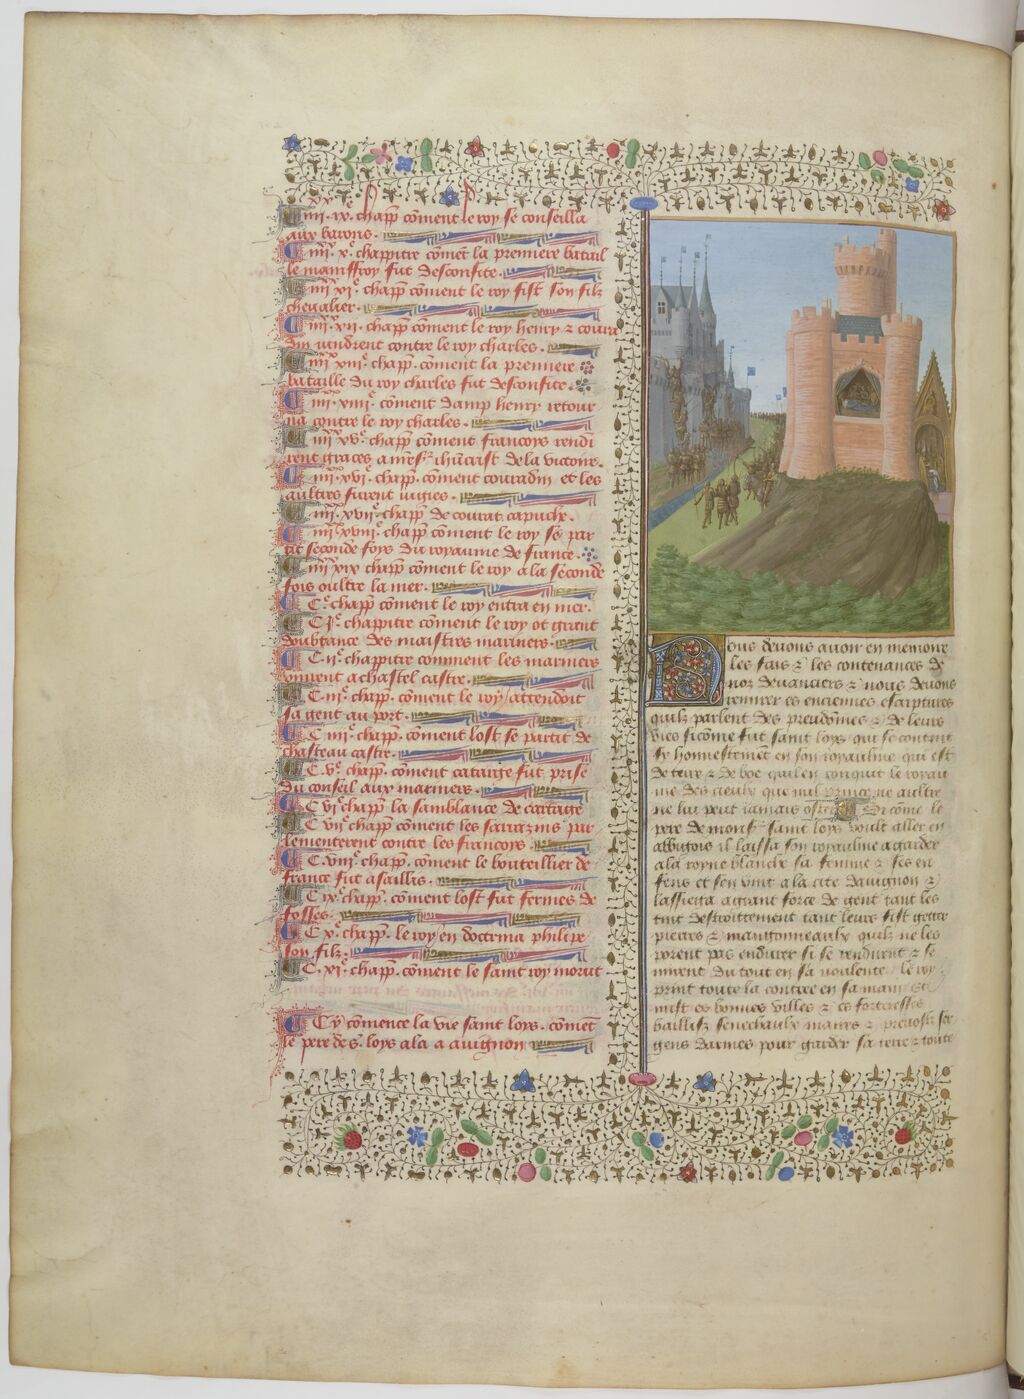 iiii xx ix.e chapp coment le roy se conseilla
aux barons.
iiii xx x.e chappitre coment la premiere batail
le mainffroy fut desconfite.
iiii xx xi.e chapp coment le roy fist son filz
chevalier.
iiii xx xii. chapp coment le roy henry ⁊ coura
din vindrent contre le roy charles.
iiii xx xiii.e chapp. coment la premiere
bataille du roy charles fut desconfite.
iiii xx xiiii.e coment damp henry retour
na contre le roy charles.
iiii xx xv.e chapp coment francoys rendi
rent graces a nres.r ihucrist de la victoire.
iiii xx xvi.e chapp. coment couradin et les
aultres furent iugies.
iiii xx xvii.e chapp de courat capuche.
iiii xx xviii.e chapp coment le roy se par
tit seconde foys du royaume de france.
iiii xx xix chapp coment le roy ala seconde
fois oultre la mer.
C.e chapp coment le roy entra en mer.
C i.e chappitre coment le roy ot grant
doubtance des maistres mariners.
C. ii.e chappitre comment les mariners
vinrent a chastel castre.
C. iii.e chapp. coment le roy attendoit
sa gent au port.
C iiii.e chapp: coment lost se partit de
chasteau castre.
C. v.e chapp. coment cartaige fut prise
du conseil aux mariners.
C vi.e chapp la samblance de cartage
C vii.e chapp coment les sarrazins par
lementerent contre les francoys.
C. viii.e chapp. coment le bouteillier de
france fut assaillis.
C ix.e chapp. coment lost fut fermes de
fosses.
C x.e chapp. le roy en doctrina philipe
son filz.
C. xi.e chapp. coment le saint roy morut
Cy comence la vie saint loys. coment
le pere de s. loys ala a avignon
Nous devons avoir en memoire
les fais ⁊ les contenances de
noz devanciers ⁊ nous devons
remirer es enciennes escriptures
quilz parlent des preudomes ⁊ de leurs
vies sicome fut saint loys qui se contint
sy honnestement en son royaulme qui est
de terre ⁊ de boe quil en conquit le royau
me des cieulx que nul prince ne aultre
ne lui peut iamais oster Or come le
pere de mons.r saint loys voult aller en
albigois il laissa son royaulme a garder
a la royne blanche sa femme ⁊ ses en
fens et sen vint a la cite davignon ⁊
lassieia a grant force de gent tant les
tint destroittement tant leurs fist getter
pierres ⁊ mangonneaulx quilz ne les
porent pas endurer si se rendirent ⁊ se
mirent du tout en sa voulente. le roy
print toute la contree en sa main et
mist es bonnes villes ⁊ es forteresses
baillifz senechaulx maires ⁊ prevostz ser
gens darmes pour garder sa terre ⁊ toute